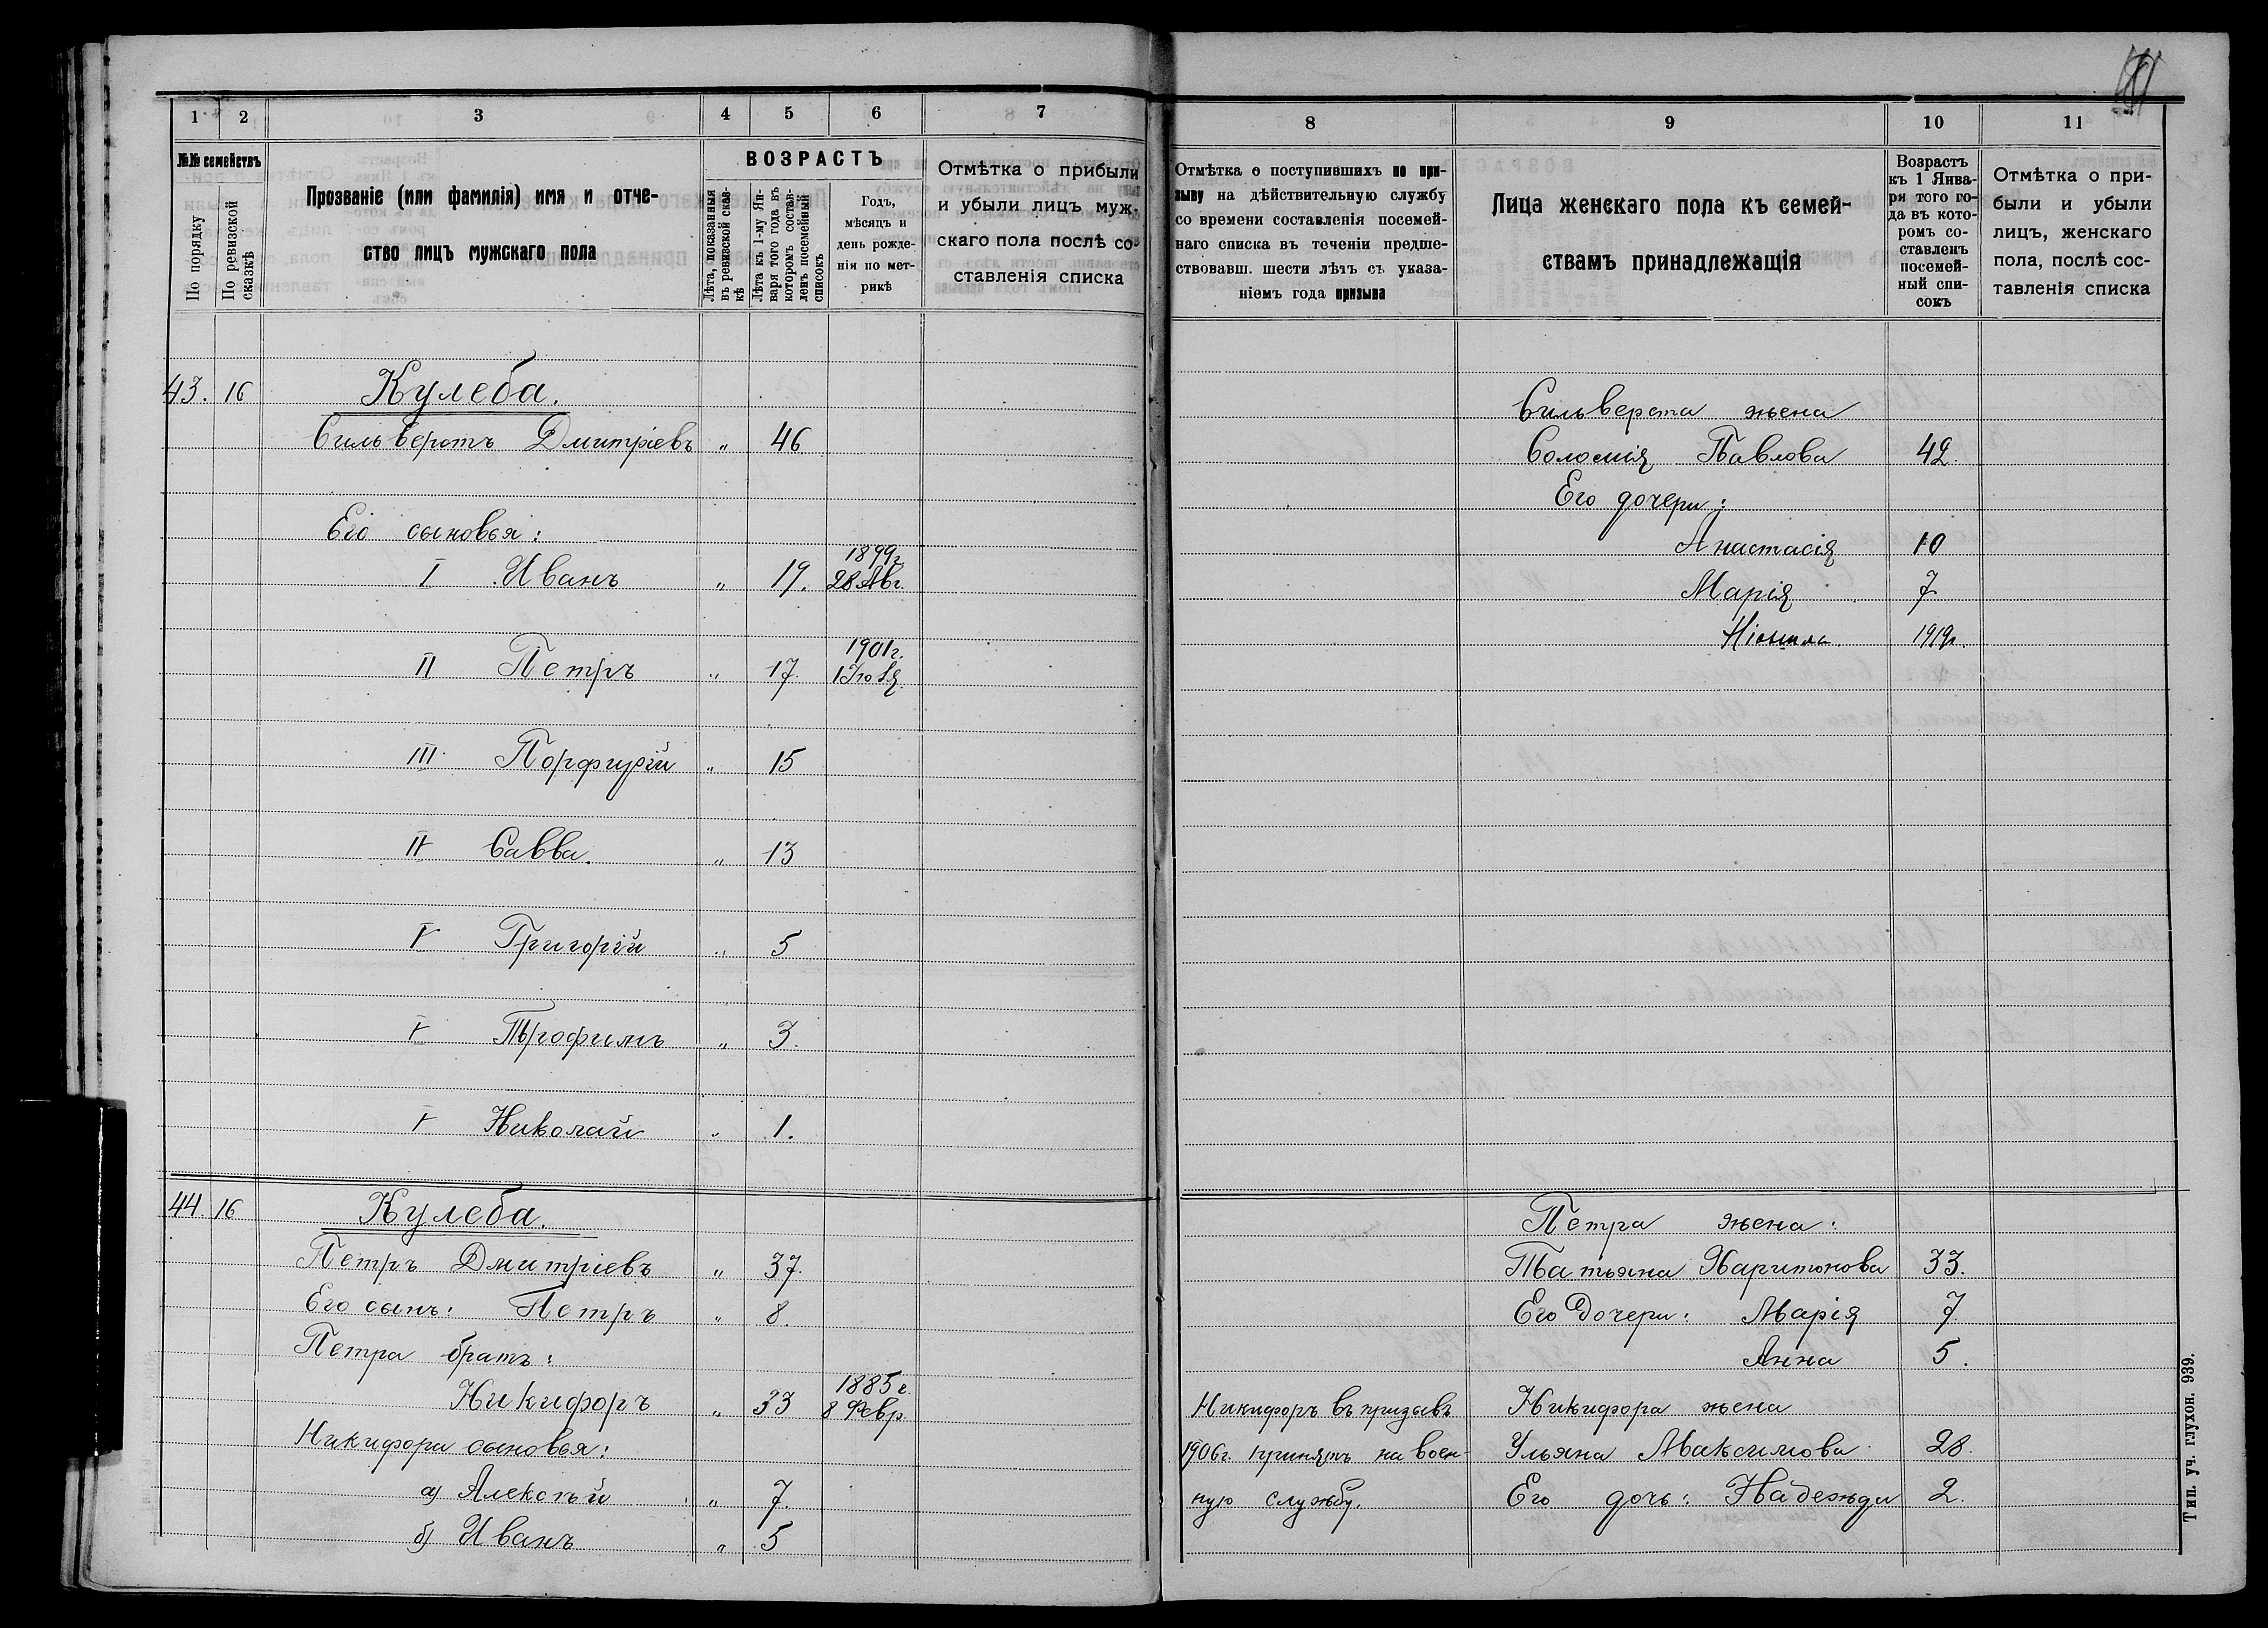 1 2 3 4 5 6 7
№№ семействъ
По порядку
По ревизской сказкѣ
Прозваніе (или фамилія) имя и отче-
ство лицъ мужскаго пола
ВОЗРАСТЪ
Лѣта, показанныя въ ревизской сказ-кѣ
Лѣта къ 1-му Ян-варя того года въ которомъ состав-ленъ посемейный списокъ
Годъ,
мѣсяцъ и
день рожде-
нія по мет-
рикѣ
Отмѣтка о прибыли
и убыли лицъ муж-
скаго пола послѣ со-
ставленія списка
43. 16 Кулеба.
Сильверстъ Дмитріевъ „ 46
Его сыновья:
1899г.
I Иванъ „ 19. 28 Авг.
1901г.
II Петръ „ 17. 1 Іюля
III Порфирій „ 15
IV Савва. „ 13
V Григорій „ 5
V Трофимъ „ 3.
V Николай „ 1.
44. 16 Кулеба.
Петръ Дмитріевъ „ 37.
Его сынъ: Петръ „ 8.
Петра братъ:
1885г.
Никифоръ „ 33 8 Февр
Никифора сыновья:
а) Алексѣй „ 7.
б) Иванъ „ 5
8 9 10 11
Отмѣтка о поступившихъ по при-
зыву на дѣйствительную службу
со времени составленія посемей-
наго списка въ теченіи предше-
ствовавш. шести лѣтъ съ указа-
ніемъ года призыва
Лица женскаго пола къ семей-
ствамъ принадлежащія
Возрастъ
къ 1 Янва-
ря того го-
да въ кото-
ромъ со-
ставленъ
посемей-
ный спи-
сокъ
Отмѣтка о при-
были и убыли
лицъ, женскаго
пола, послѣ сос-
тавленія списка
Сильверста жена
Соломія Павлова 42.
Его дочери:
Анастасія 10
Марія 7
1919г.
Петра жена:
Татьяна Харитонова 33.
Его дочери: Марія 7.
Анна 5.
Никифоръ въ призывъ Никифора жена
1906г. принятъ на воен- Ульяна Максимова 28.
ную службу. Его дочь: Надежда 2.
Тип. уч. глухон. 939.